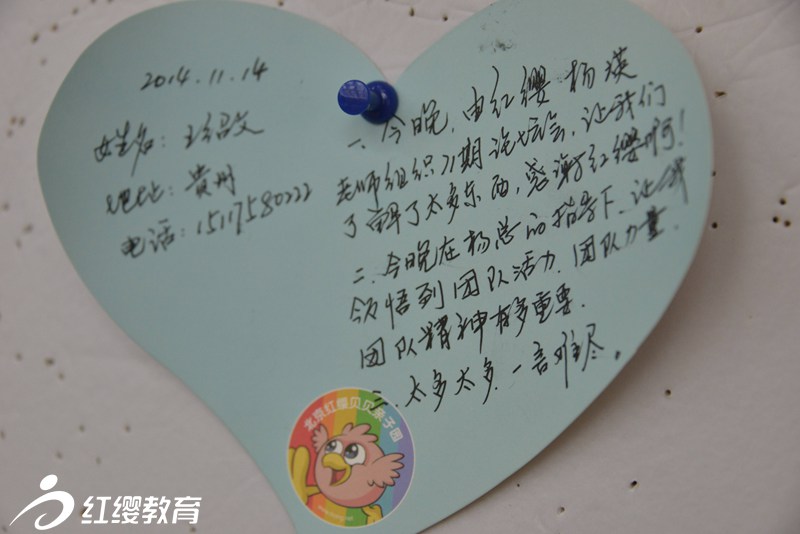 2014.11.14
姓名：王绍文
地址：贵州
电话：15117580222
一、今晚，由红缨杨瑛
老师组织21期论坛会，让我们
了解了太多东西，感谢红缨啊！
二、今晚在杨总的指导下，让我
领悟到团队活力、团队力量、
团队精神有多重要.
三、太多太多，一言难尽。
北京红缨贝贝亲子园
红缨教育